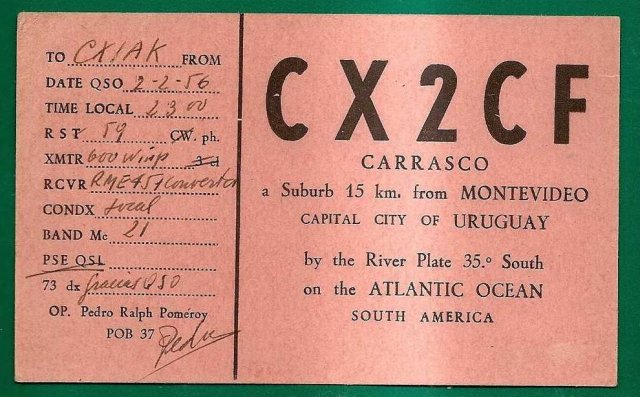 TO CX1AK FROM
DATE QSO 2-2-56
TIME LOCAL 23 00
RST 59 CW. ph.
XMTR 600 W inp
RCVR RME 45 + Converter
CONDX Local
BAND Mc 21
PSE QSL
73 dx Gracias QSO
OP. Pedro Ralph Pomeroy
POB 37 Pedro
CX2CF
CARRASCO
a Suburb 15 km. from MONTEVIDEO
CAPITAL CITY OF URUGUAY
by the River Plate 35.º South
on the ATLANTIC OCEAN
SOUTH AMERICA